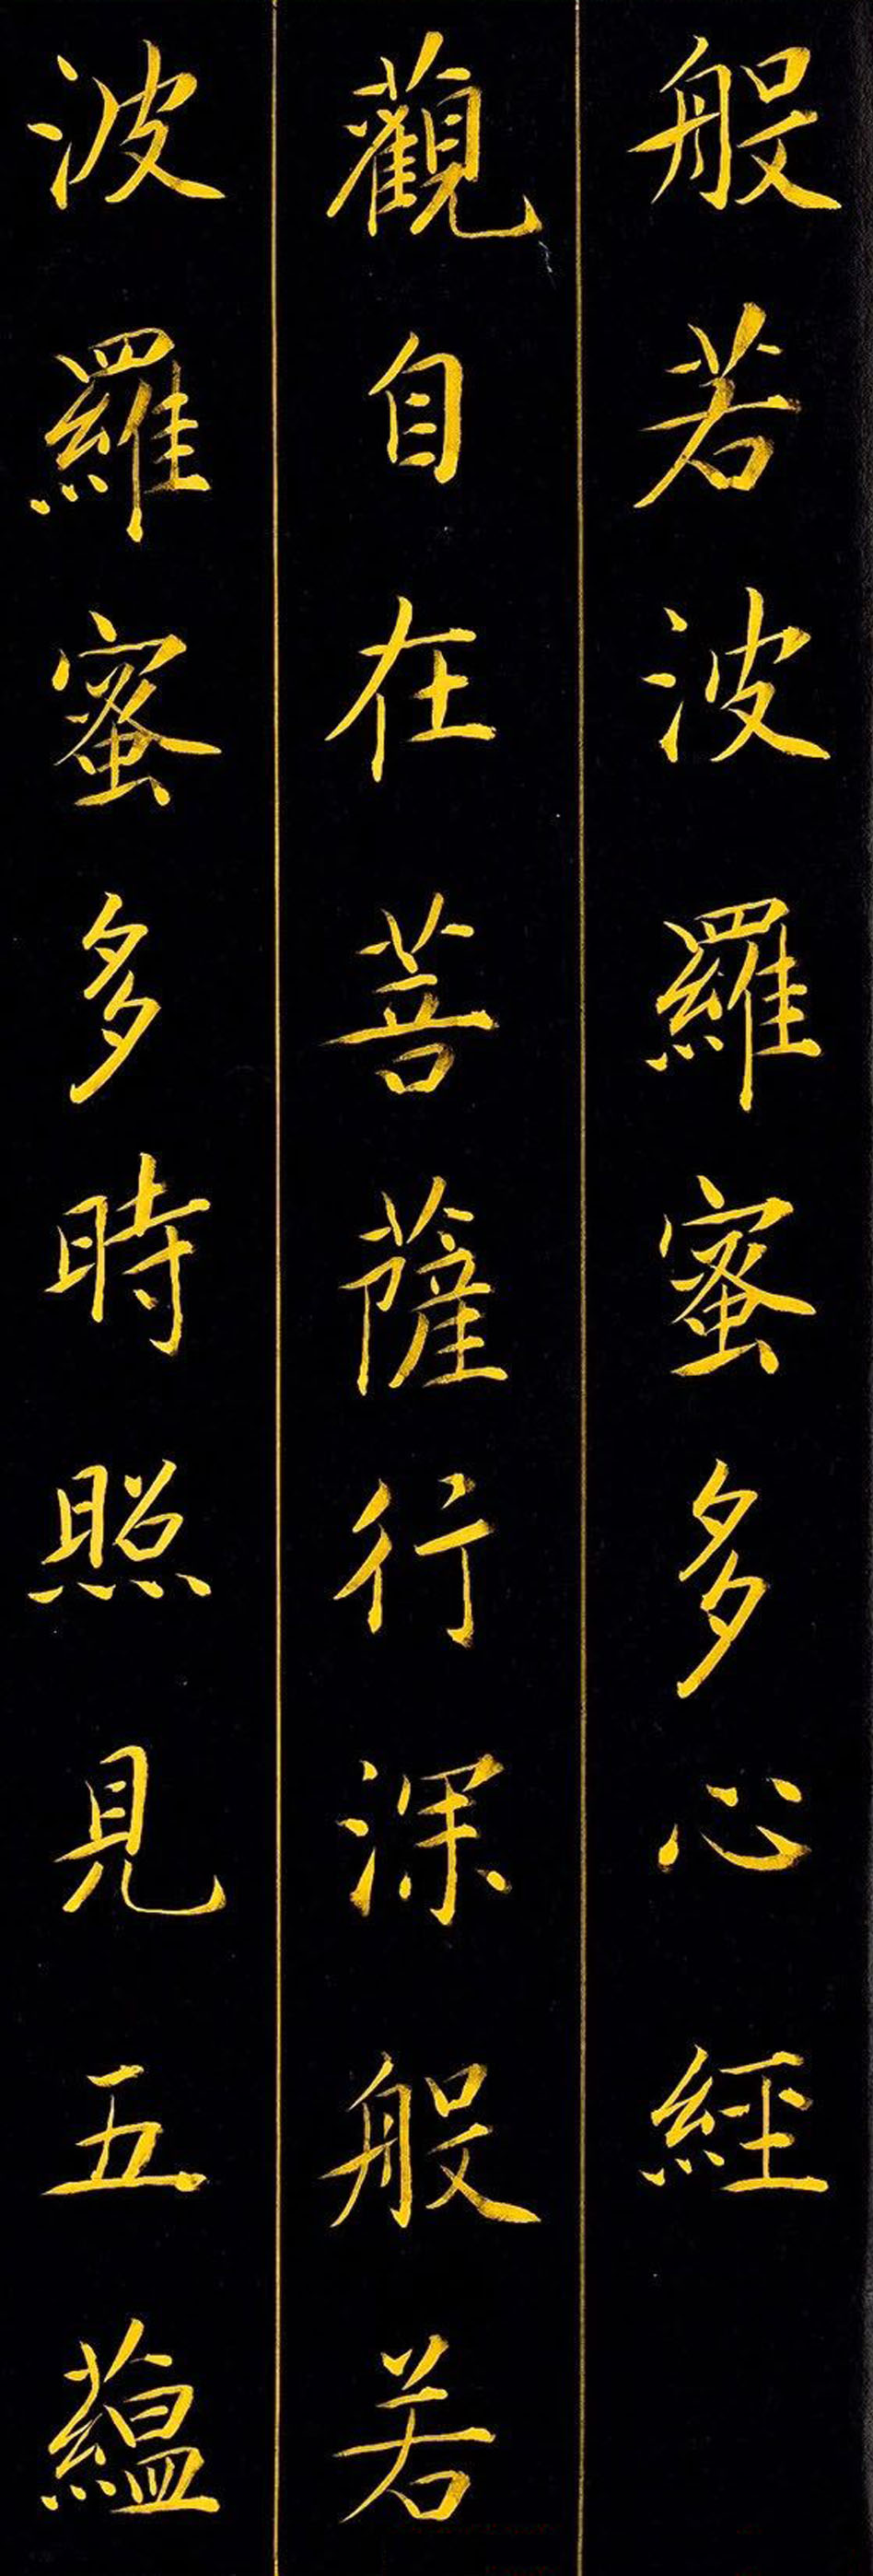 般若波羅蜜多心經
觀自在菩薩行深般若
波羅蜜多時照見五蘊